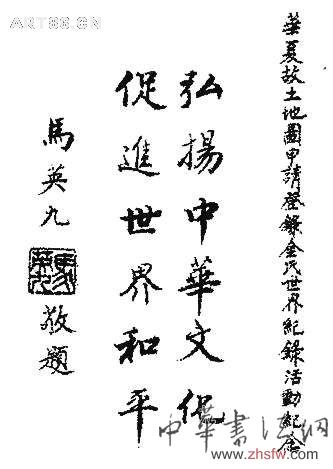 華夏故土地圖申請登錄金氏世界紀錄活動紀念
弘揚中華文化
促進世界和平
馬英九
敬題
ART86.CN
中華書法網
www.zhsfw.com